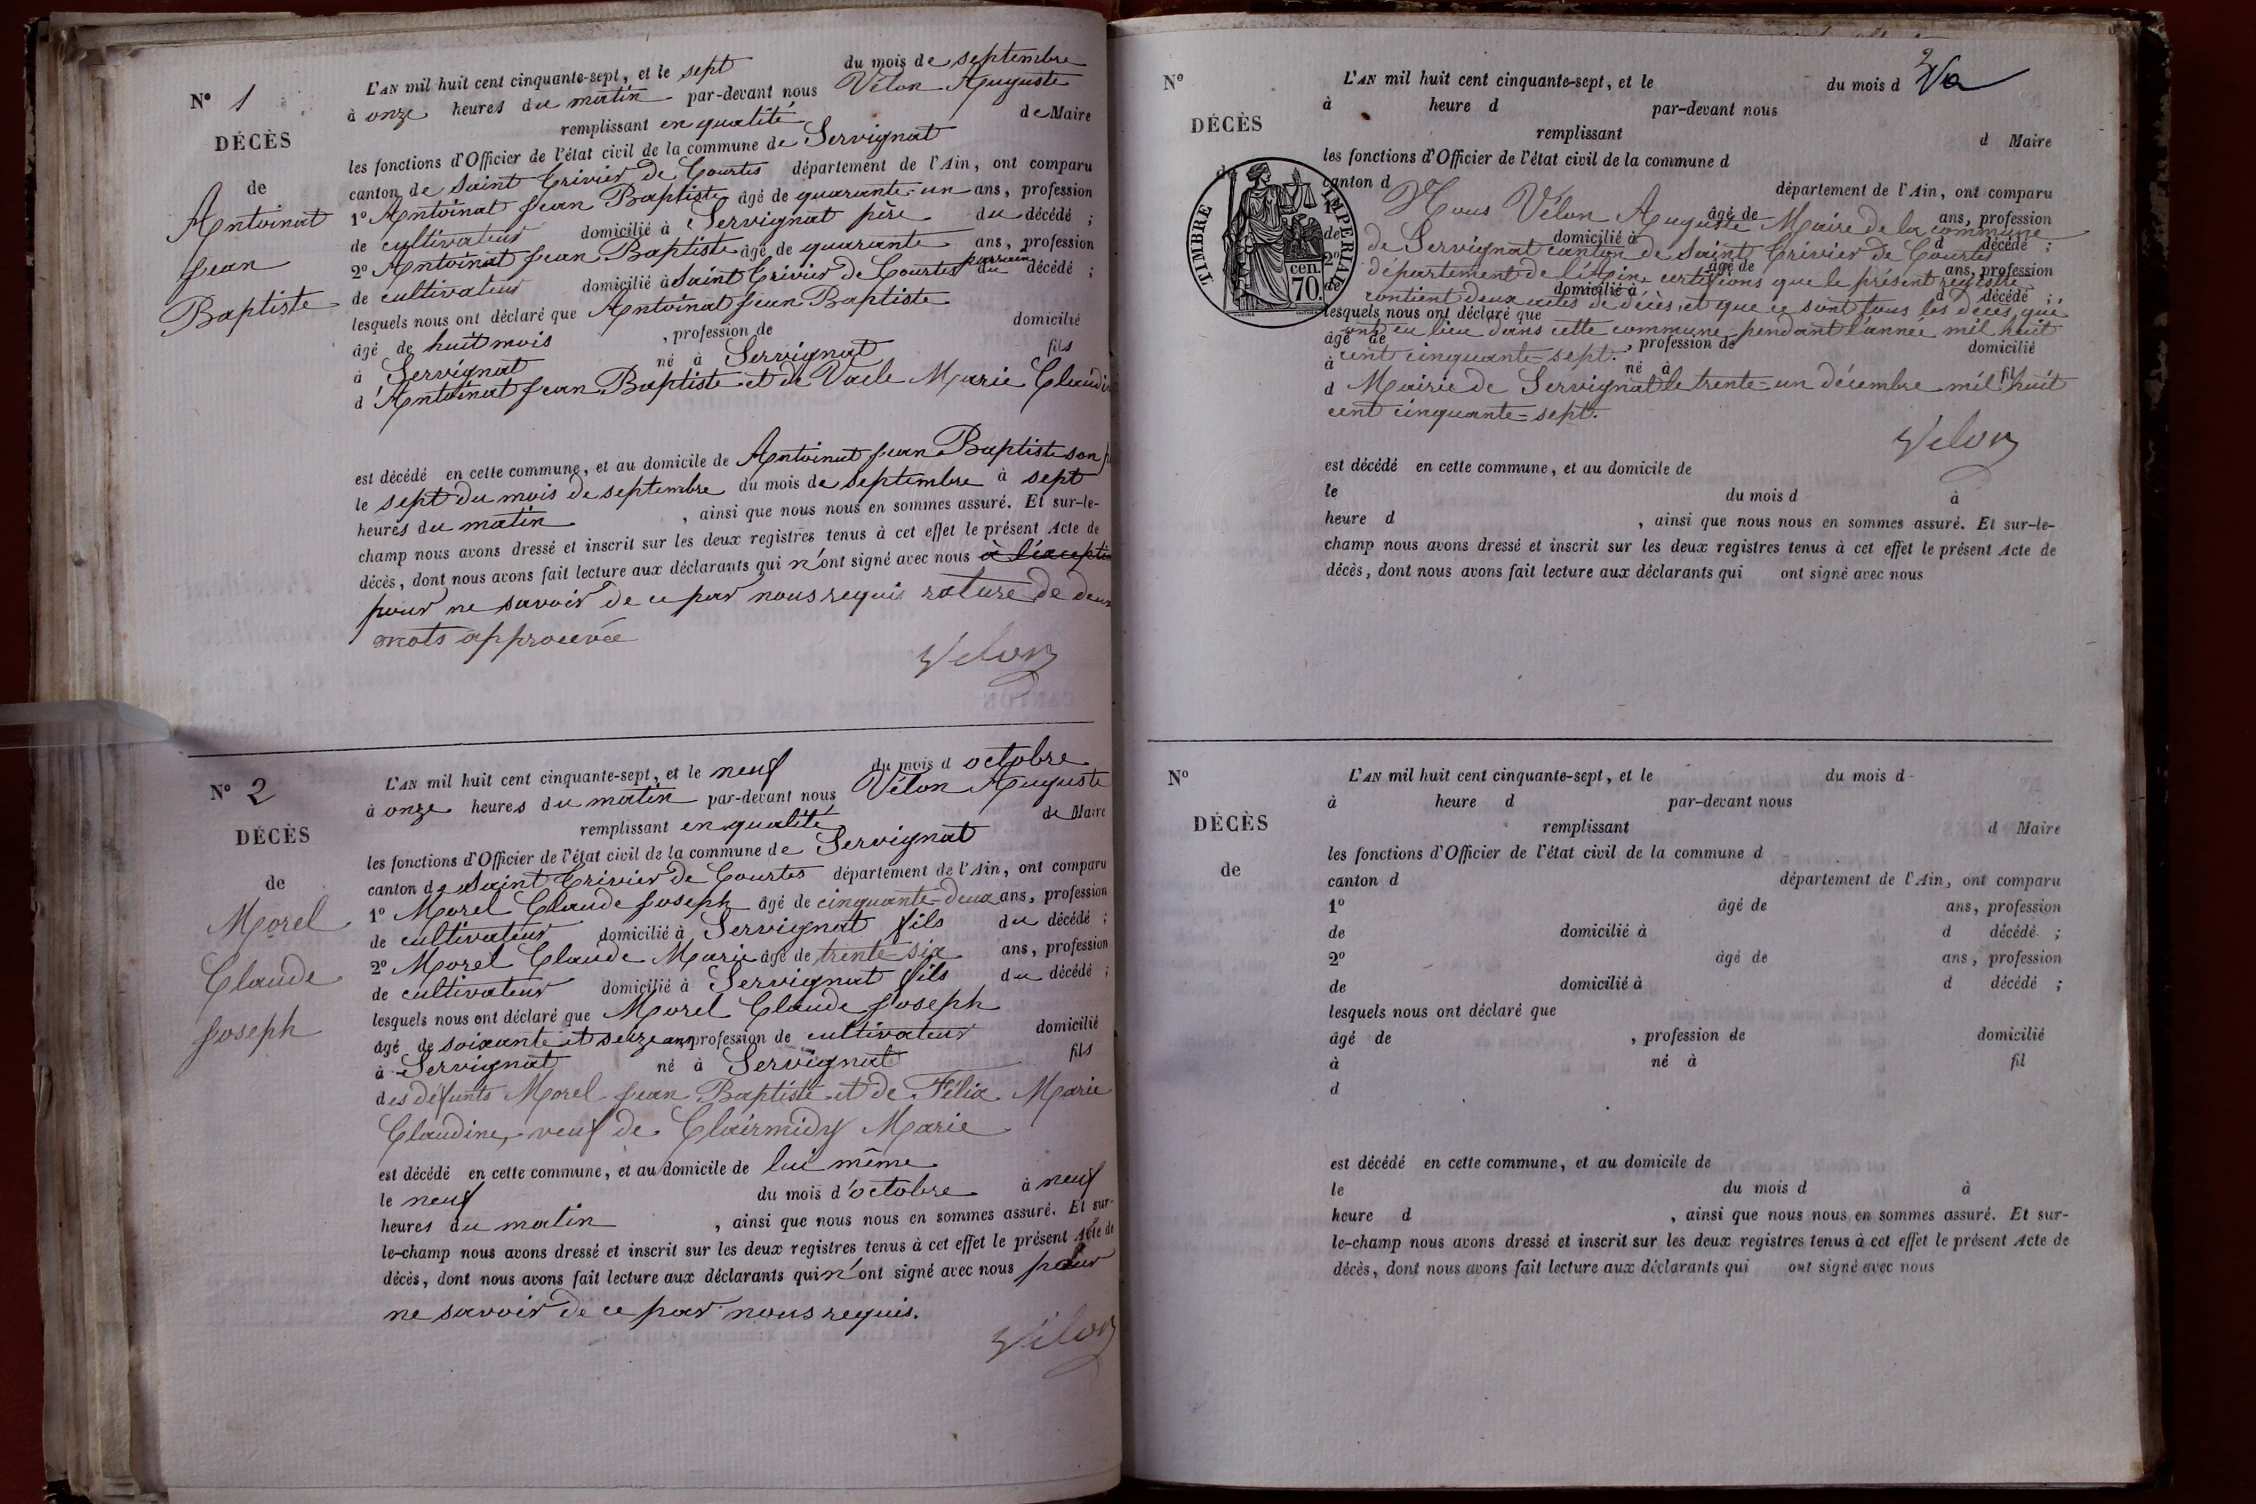 N° 1
DÉCÈS
de
Antoinat
Jean
Baptiste
L'AN mil huit cent cinquante-sept, et le sept du mois de septembre
à onze heures du matin par-devant nous Vélon Auguste
remplissant en qualité de Maire
les fonctions d'Officier de l'état civil de la commune de Servignat
canton de Saint Trivier de Courtes département de l'Ain, ont comparu
1° Antoinat Jean Baptiste âgé de quarante-un ans, profession
de cultivateur domicilié à Servignat père du décédé ;
2° Antoinat Jean Baptiste âgé de quarante ans, profession
de cultivateur domicilié à Saint Trivier de Courtes parrain du décédé ;
lesquels nous ont déclaré que Antoinat Jean Baptiste
âgé de huit mois , profession de domicilié
à Servignat né à Servignat fils
d'Antoinat Jean Baptiste et de Marie Claudi
est décédé en cette commune, et au domicile de Antoinat Jean Baptiste son
le sept du mois de septembre du mois de septembre à sept
heures du matin , ainsi que nous nous en sommes assuré. Et sur-le-
champ nous avons dressé et inscrit sur les deux registres tenus à cet effet le présent Acte de
décès, dont nous avons fait lecture aux déclarants qui n'ont signé avec nous à l'exception
pour ne savoir de ce par nous requis rature de deux
mots approuvée
Velon
N° 2
DÉCÈS
de
Morel
Claude
Joseph
L'AN mil huit cent cinquante-sept, et le neuf du mois d octobre
à onze heures du matin par-devant nous Vélon Auguste
remplissant en qualité de Maire
les fonctions d'Officier de l'état civil de la commune de Servignat
canton de Saint Trivier de Courtes département de l'Ain, ont comparu
1° Morel Claude Joseph âgé de cinquante-deux ans, profession
de cultivateur domicilié à Servignat fils du décédé ;
2° Morel Claude Marie âgé de trente six ans, profession
de cultivateur domicilié à Servignat fils du décédé ;
lesquels nous ont déclaré que Morel Claude Joseph
âgé de soixante et seize ans profession de cultivateur domicilié
à Servignat né à Servignat fils
des défunts Morel Jean Baptiste et de Félix Marie
Claudine, veuf de Clairmidy Marie
est décédé en cette commune, et au domicile de lui même
le neuf du mois d'octobre à neuf
heures du matin , ainsi que nous nous en sommes assuré. Et sur-
le-champ nous avons dressé et inscrit sur les deux registres tenus à cet effet le présent Acte de
décès, dont nous avons fait lecture aux déclarants qui n'ont signé avec nous pour
ne savoir de ce par nous requis.
Vélon
N°
DÉCÈS
d
TIMBRE IMPÉRIAL
70. cen.
L'AN mil huit cent cinquante-sept, et le du mois d
à heure d par-devant nous
remplissant d Maire
les fonctions d'Officier de l'état civil de la commune d
canton d département de l'Ain, ont comparu
âgé de ans, profession
de domicilié à d décédé ;
2° âgé de ans, profession
de domicilié à d décédé ;
lesquels nous ont déclaré que
âgé de , profession de domicilié
à né à fil
d
Nous Vélon Auguste Maire de la commune
de Servignat canton de Saint Trivier de Courtes
département de l'Ain, certifions que le présent registre
contient deux actes de décès et que ce sont tous les décès qui
ont eu lieu dans cette commune pendant l'année mil huit
cent cinquante-sept.
Mairie de Servignat le trente-un décembre mil huit
cent cinquante-sept.
Velon
est décédé en cette commune, et au domicile de
le du mois d à
heure d , ainsi que nous nous en sommes assuré. Et sur-le-
champ nous avons dressé et inscrit sur les deux registres tenus à cet effet le présent Acte de
décès, dont nous avons fait lecture aux déclarants qui ont signé avec nous
N°
DÉCÈS
de
L'AN mil huit cent cinquante-sept, et le du mois d
à heure d par-devant nous
remplissant d Maire
les fonctions d'Officier de l'état civil de la commune d
canton d département de l'Ain, ont comparu
1° âgé de ans, profession
de domicilié à d décédé ;
2° âgé de ans, profession
de domicilié à d décédé ;
lesquels nous ont déclaré que
âgé de , profession de domicilié
à né à fil
d
est décédé en cette commune, et au domicile de
le du mois d à
heure d , ainsi que nous nous en sommes assuré. Et sur-
le-champ nous avons dressé et inscrit sur les deux registres tenus à cet effet le présent Acte de
décès, dont nous avons fait lecture aux déclarants qui ont signé avec nous